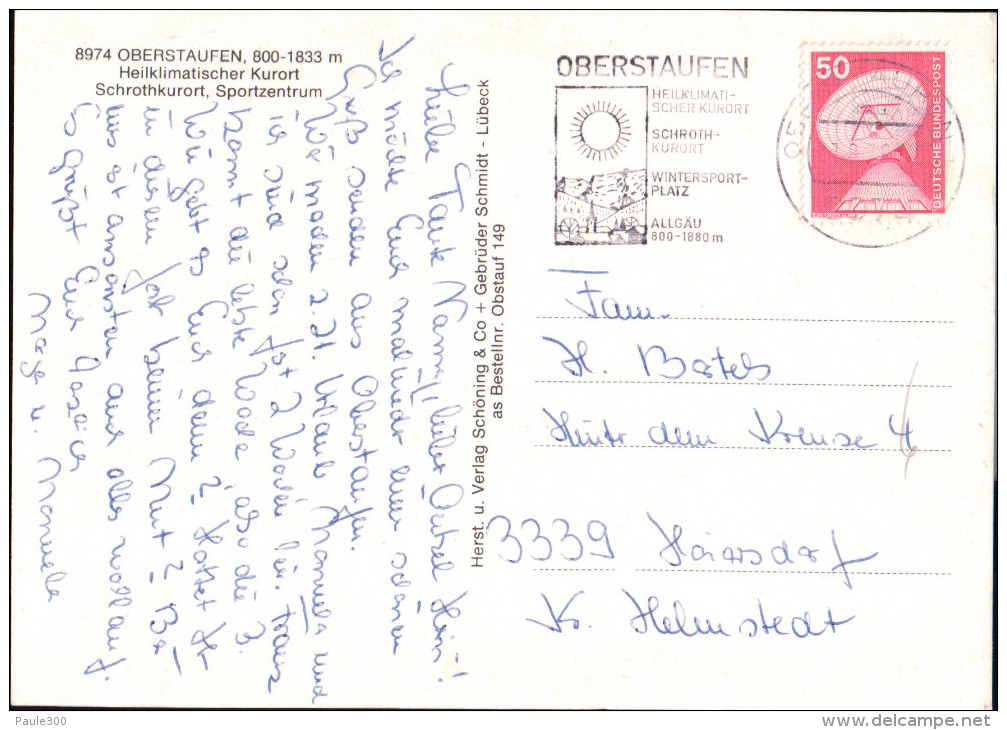 8974 OBERSTAUFEN, 800-1833 m
Heilklimatischer Kurort
Schrothkurort, Sportzentrum
Liebe Tante Nanny, lieber Onkel Hein!
Ich möchte Euch mal wieder einen schönen
Gruß senden aus Oberstaufen.
Wir machen z. Zt. Urlaub, Manuela und
ich sind schon fast 2 Wochen hier. Franz
kommt die letzte Woche, also die 3.
Wie geht es Euch denn? Hattet Ihr
in diesem Jahr keinen Mut? Bei
uns ist ansonsten auch alles wohlauf.
Es grüßt Euch
u. Manuela
Herst. u. Verlag Schöning & Co + Gebrüder Schmidt - Lübeck
as Bestellnr. Obstauf 149
OBERSTAUFEN
HEILKLIMATI-
SCHER KURORT
SCHROTH-
KURORT
WINTERSPORT-
PLATZ
ALLGÄU
800-1880 m
50
DEUTSCHE BUNDESPOST
ERDEFUNKSTELLE
Fam.
H. Bartels
Hinter dem Kreuse 4
3339 Hoiersdorf
Kr. Helmstedt
Paule300
delcampe.net